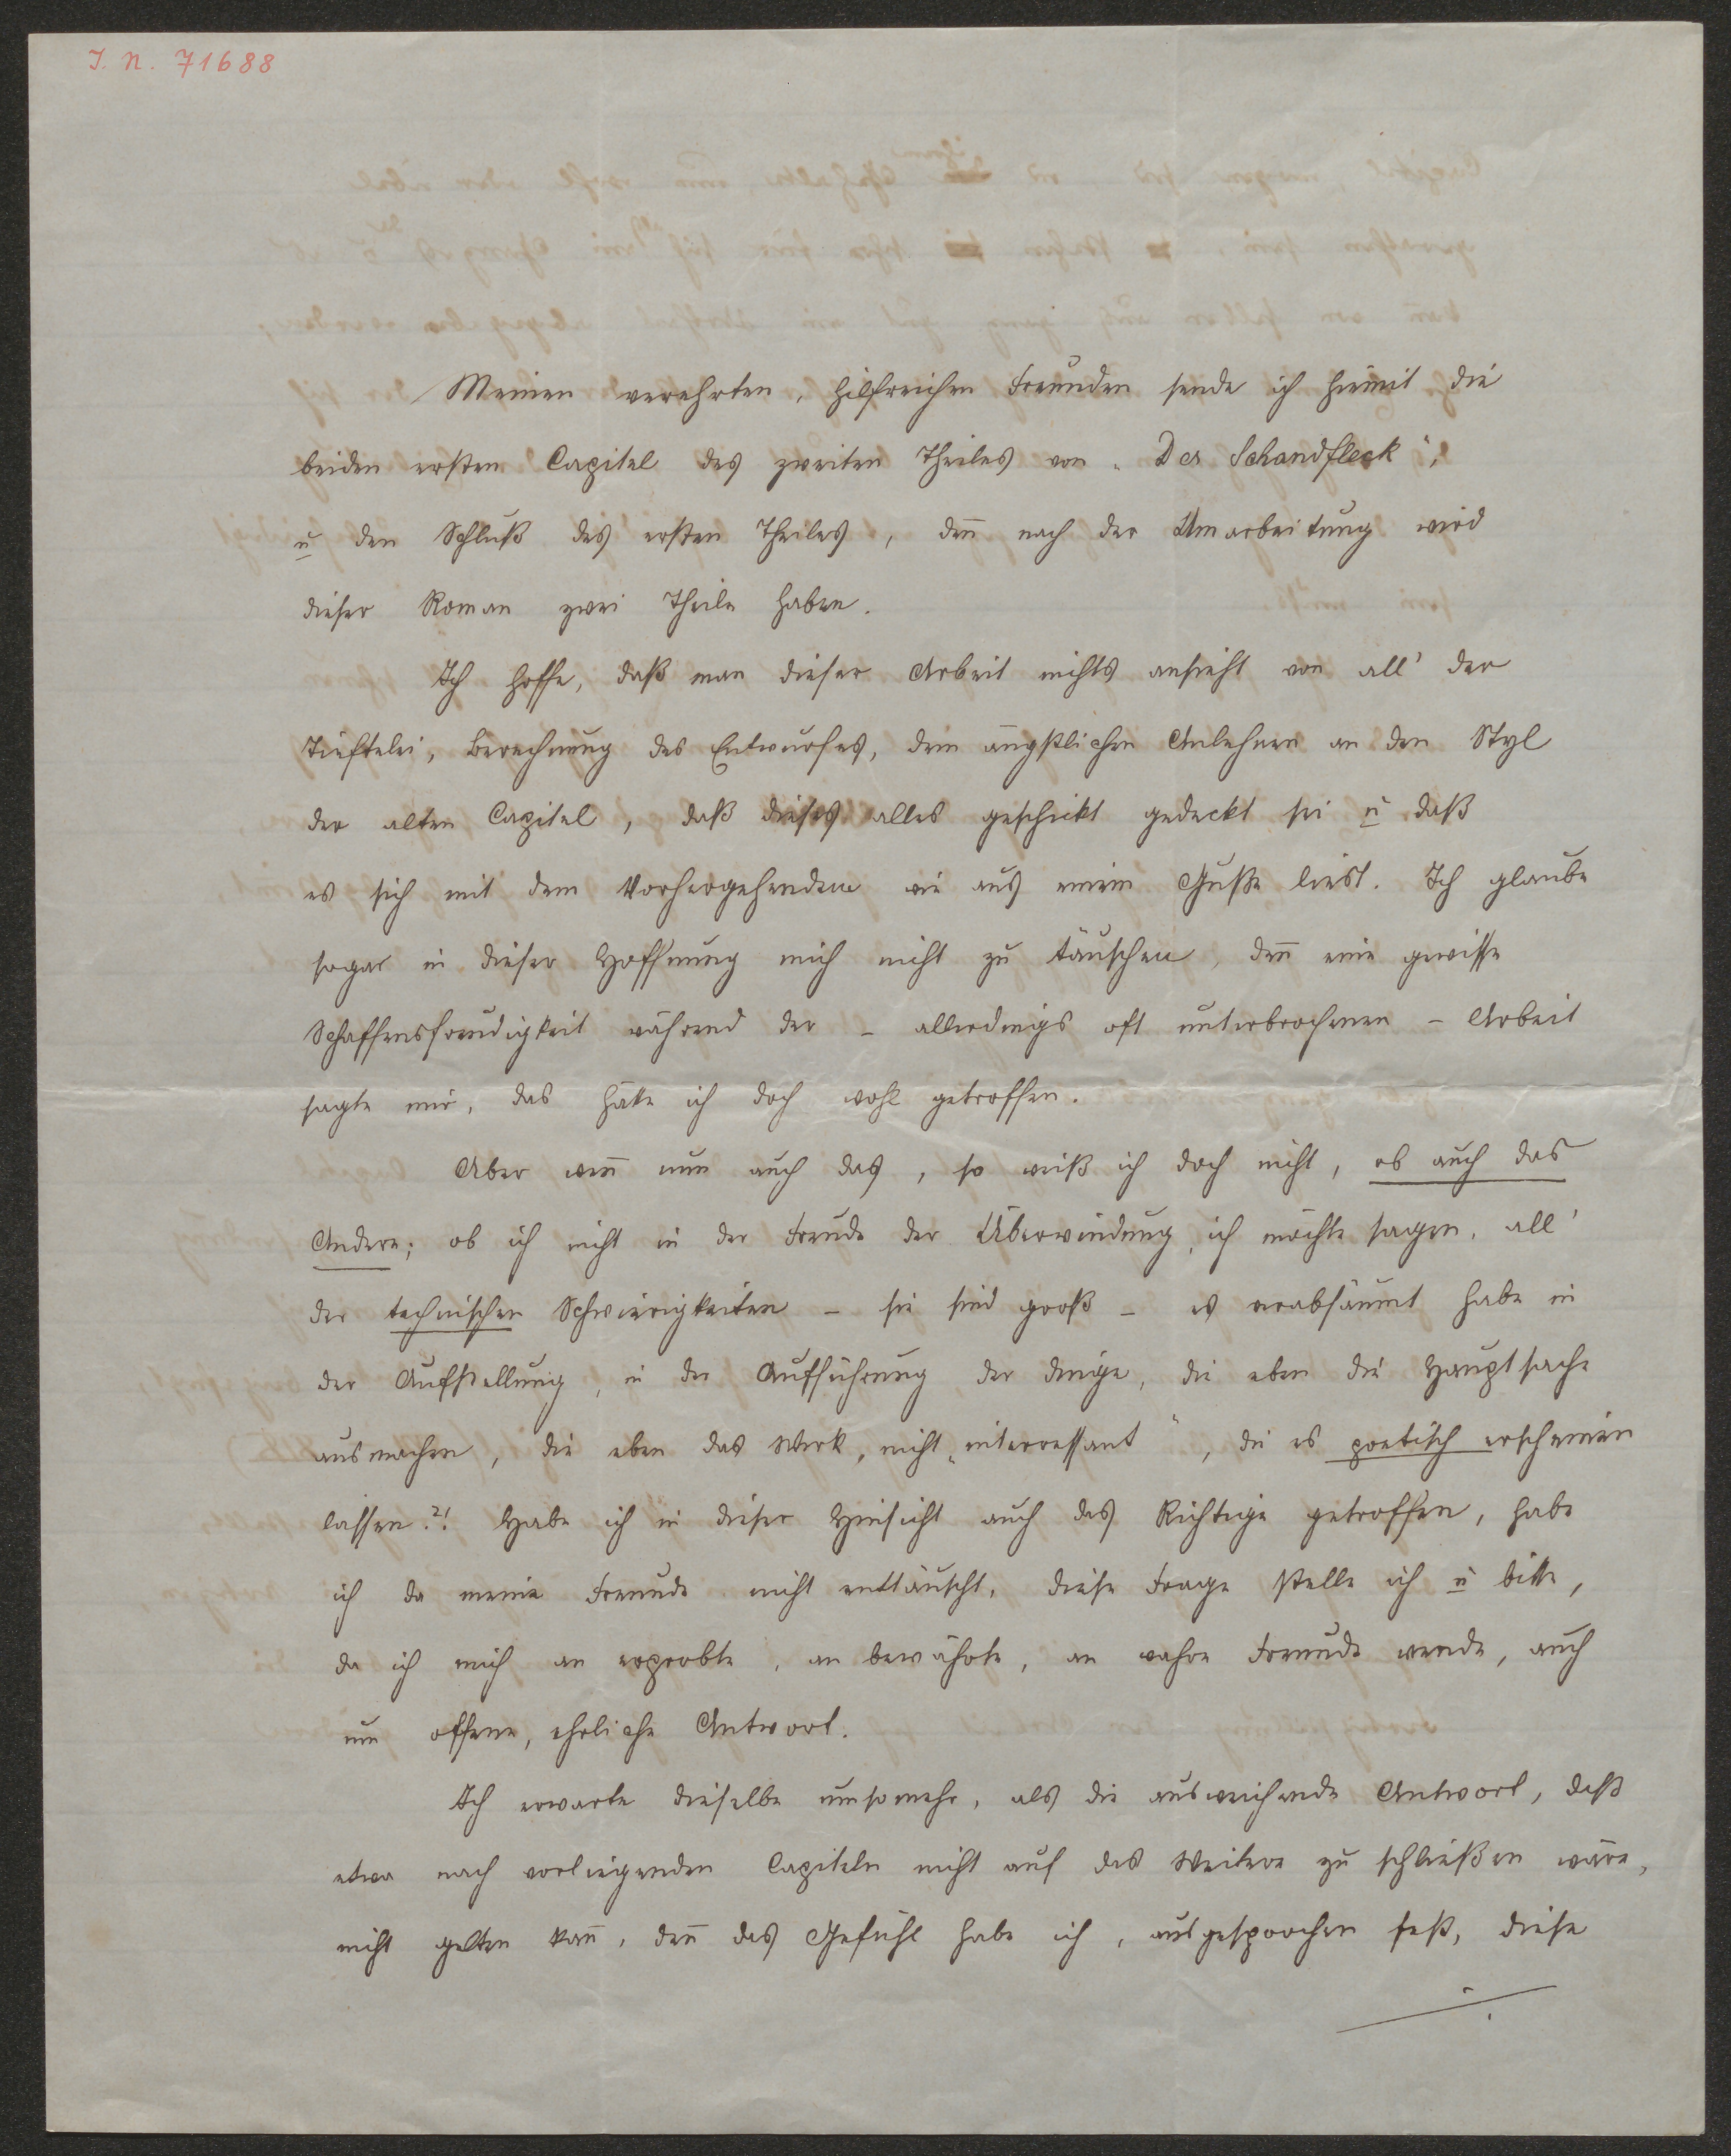 I. N. 71688
Meinen verehrten, hilfreichen Freunden sende ich hiemit die
beiden ersten Capitel des zweiten Theiles von „Der Schandfleck",
u den Schluß des ersten Theiles, deñ nach der Umarbeitung wird
dieser Roman zwei Theile haben.
Ich hoffe, daß man dieser Arbeit nichts ansieht von all' der
Tüftelei, Berechnung des Entwurfes, dem ängstlichen Anlehnen an den Styl
der alten Capitel, daß dieses alles geschickt gedeckt sei u daß
es sich mit dem Vorhergehenden wie aus einem Guße liest. Ich glaube
sogar in dieser Hoffnung mich nicht zu täuschen, deñ eine gewisse
Schaffensfreudigkeit während der – allerdings oft unterbrochenen – Arbeit
sagte mir, das hätte ich doch wohl getroffen.
Aber weñ nun auch das, so weiß ich doch nicht, ob auch das
Andere; ob ich nicht in der Freude der Überwindung, ich möchte sagen, all'
der technischen Schwierigkeiten – sie sind groß – es verabsäumt habe in
der Aufstellung, in der Aufführung der Dinge, die eben die Hauptsache
ausmachen, die eben das Werk, nicht „interressant", die es poetisch erscheinen
lassen?! Habe ich in dieser Hinsicht auch das Richtige getroffen, habe
ich da meine Freunde nicht enttäuscht, diese Frage stelle ich u bitte,
da ich mich an erprobte, an bewährte, an wahre Freunde wende, auch
um offene, ehrliche Antwort.
Ich erwarte dieselbe umsomehr, als die ausweichende Antwort, daß
etwa nach vorliegenden Capiteln nicht auf das Weitere zu schließen wäre,
nicht gelten kañ, deñ das Gefühl habe ich, ausgesprochen fest, diese